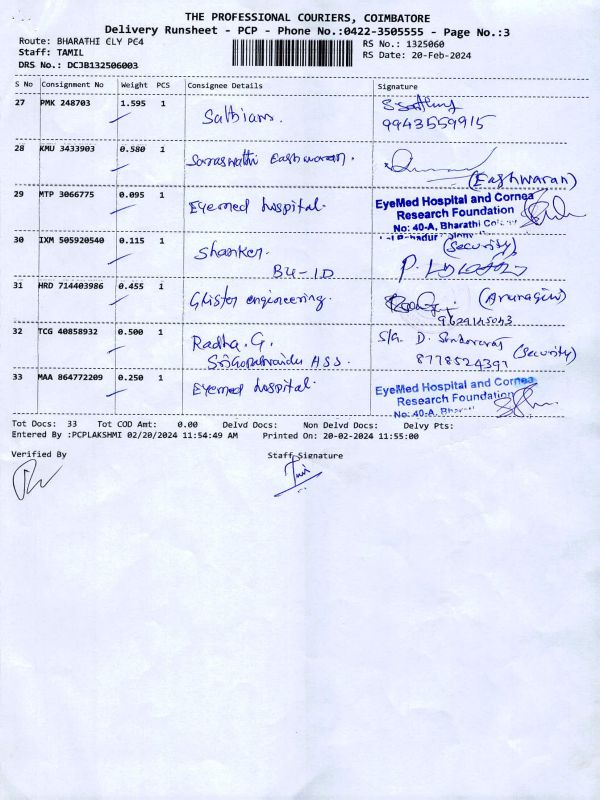 THE PROFESSIONAL COURIERS, COIMBATORE
Delivery Runsheet - PCP - Phone No.:0422-3505555 - Page No.:3
Route: BHARATHI CLY PC4
RS No.: 1325060
Staff: TAMIL
RS Date: 20-Feb-2024
DRS No.: DCJB132506003
S No Consignment No Weight PCS Consignee Details Signature
27 PMK 248703 1.595 1
9943559915
28 KMU 3433903 0.580 1 Saraswathi Eashwaran.
(Eashwaran)
29 MTP 3066775 0.095 1 Eyemed hospital.
EyeMed Hospital and Cornea
Research Foundation
No: 40-A, Bharathi
30 IXM 505920540 0.115 1 Shanker.
(Security)
BU-ID
31 HRD 714403986 0.455 1 Glister engineering.
32 TCG 40858932 0.500 1 Radha.G.
S/G. D.
HSS.
8778524397 (Security)
33 MAA 864772209 0.250 1 Eyemed hospital.
EyeMed Hospital and Cornea
Research Foundation
No: 40-A,
Tot Docs: 33 Tot COD Amt: 0.00 Delvd Docs: Non Delvd Docs: Delvy Pts:
Entered By :PCPLAKSHMI 02/20/2024 11:54:49 AM Printed On: 20-02-2024 11:55:00
Verified By Staff Signature